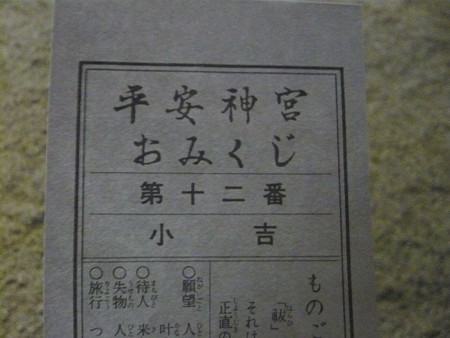 平安神宮
おみくじ
第十二番
小吉
ものご
「祓
それは
正直の
○願望 人
叶
○待人 来
○失物 人
○旅行 つ